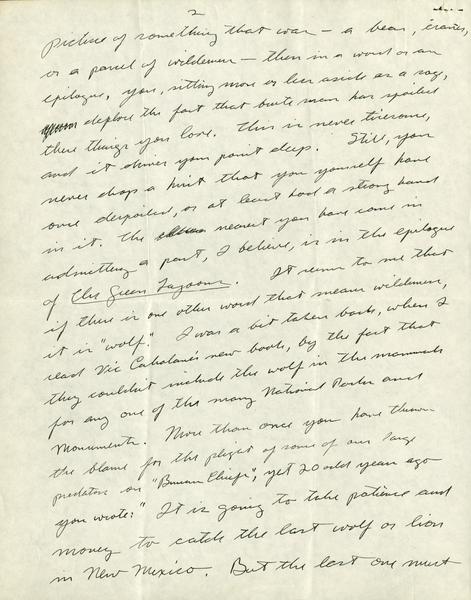 2
picture of something that was — a bear, cranes,
or a parcel of wilderness — then in a word or an
epilogue, you, sitting more or less aside as a sage,
deplore the fact that brute man has spoiled
these things you love. This is never tiresome,
and it drives your point deep. Still, you
never drop a hint that you yourself have
once despoiled, or at least had a strong hand
in it. The nearest you have come in
admitting a part, I believe, is in the epilogue
of The Green Lagoons. It seems to me that
if there is one other word that means wilderness,
it is "wolf." I was a bit taken back, when I
read Vic Cahalane's new book, by the fact that
they couldn't include the wolf in the mammals
for any one of the many National Parks and
Monuments. More than once you have thrown
the blame for the plight of some of our large
predators on "Bureau Chiefs", yet 20 odd years ago
you wrote: "It is going to take patience and
money to catch the last wolf or lion
in New Mexico. But the last one must